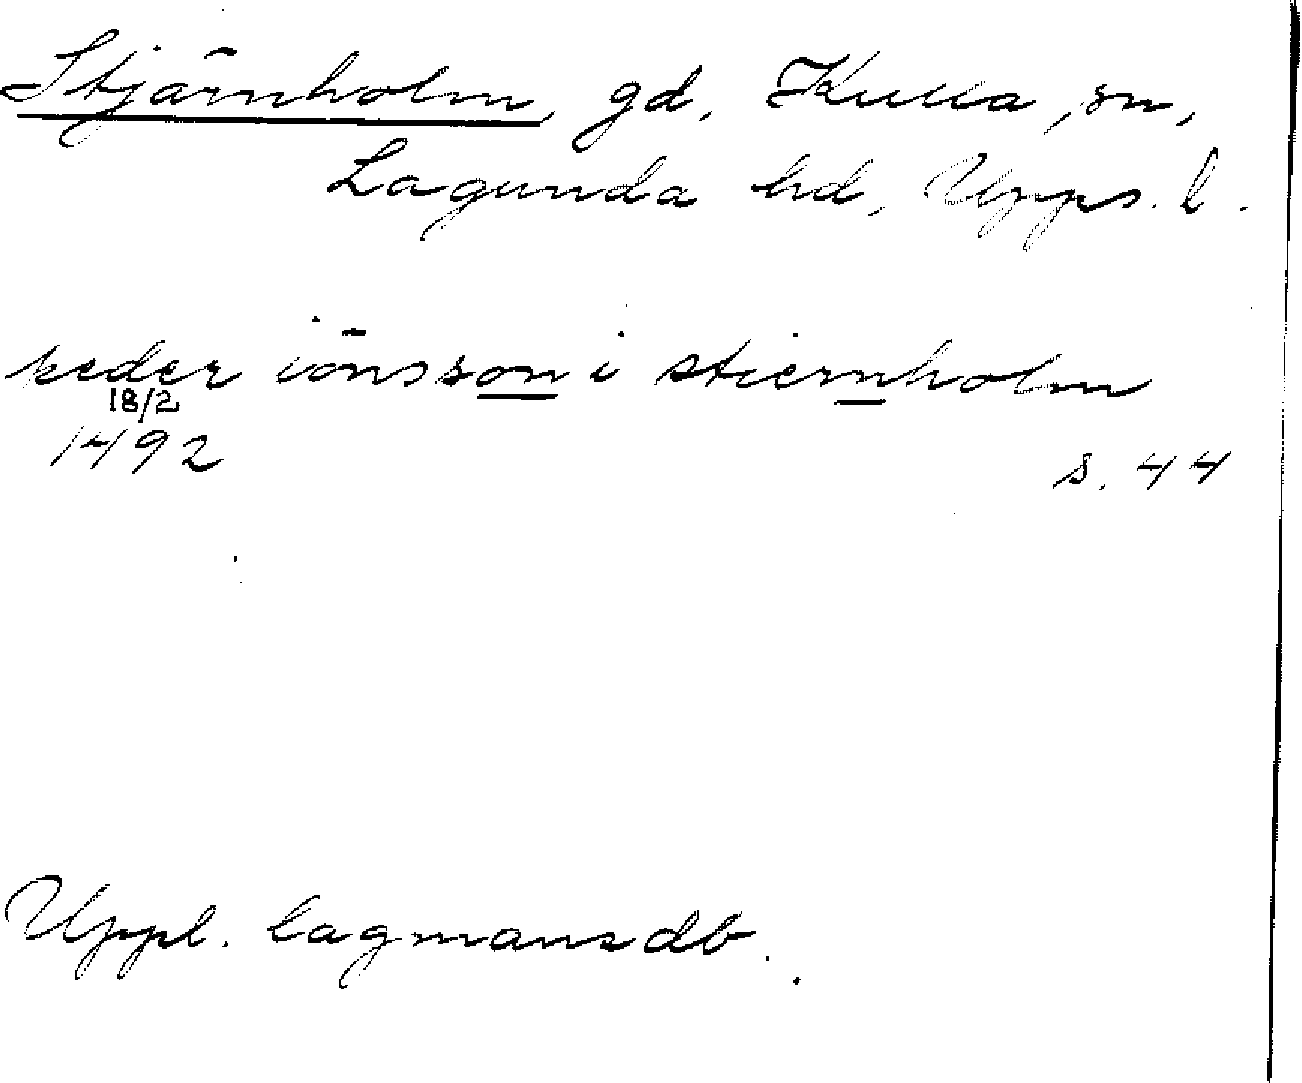 Stjärnholm, gd, Kulla, sn,
Lagunda hd, Upps. l.
peder iönsson i stiernholm
18/2
1492
s. 44
Uppl. lagmansdb.